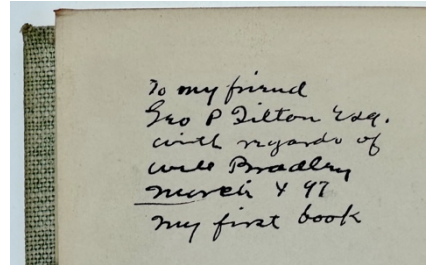 To my friend
Geo P Tilton Esq.
with regards of
Will Bradley
March 4 97
my first book